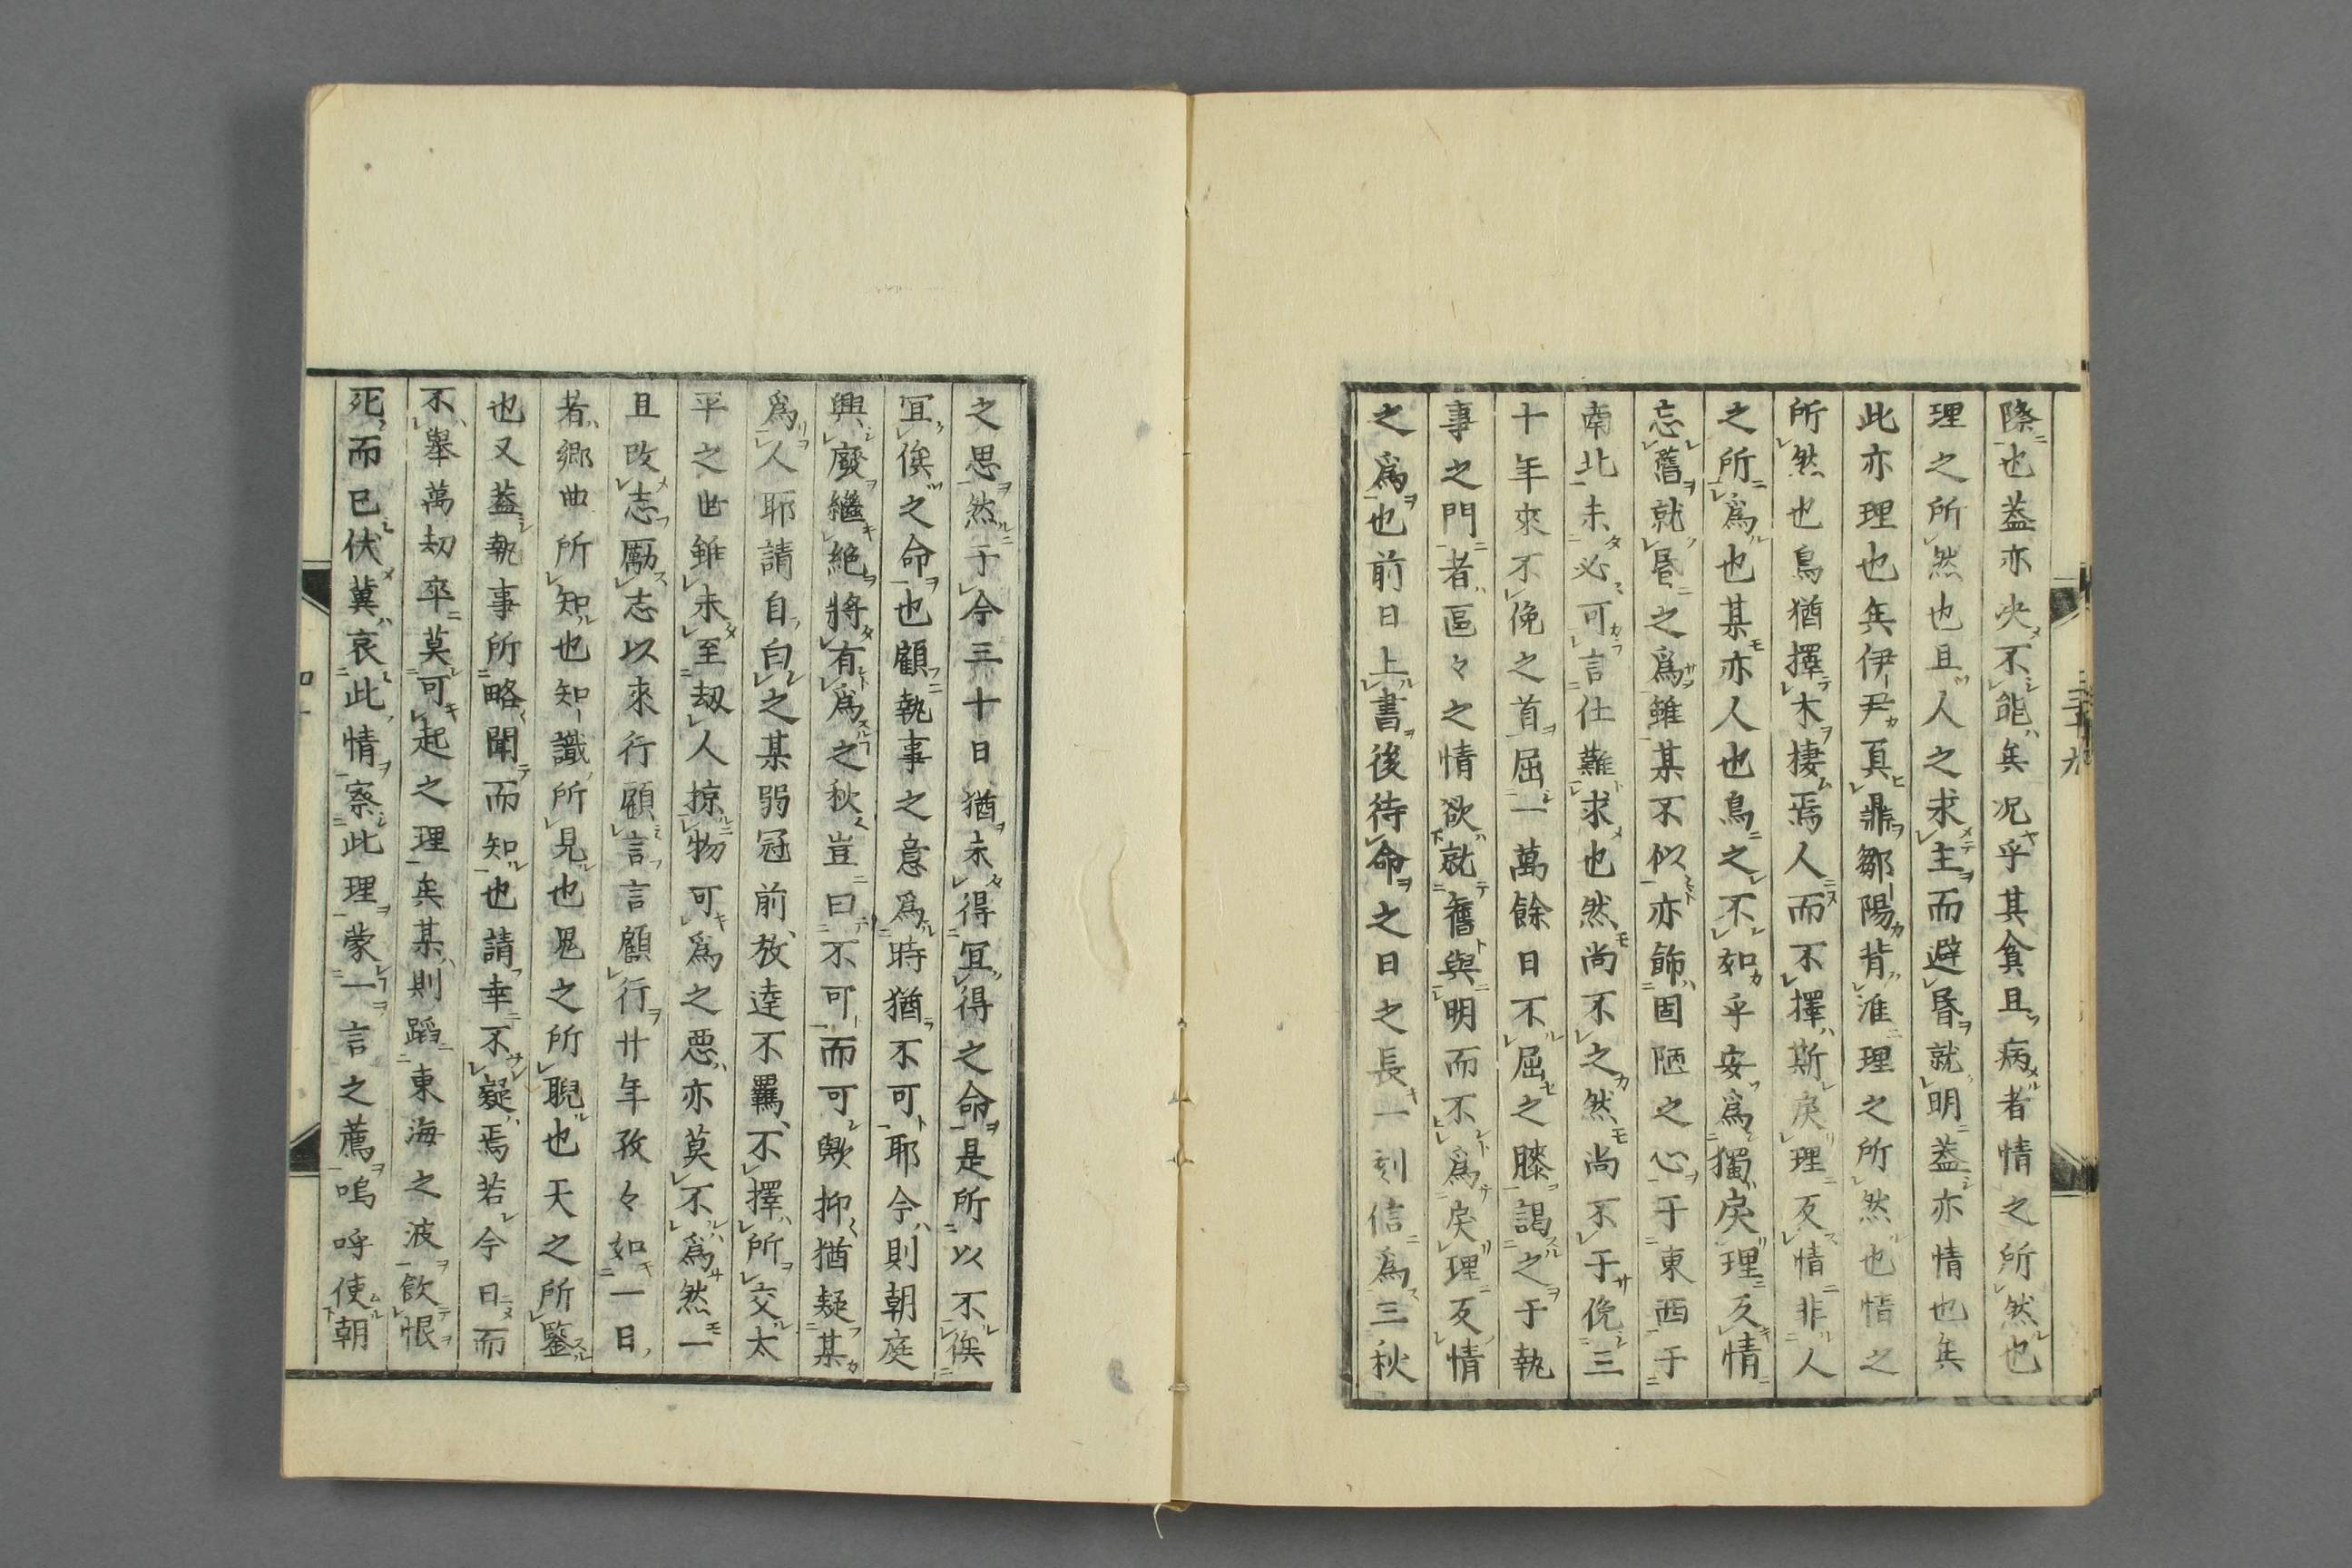 三十九
際也蓋亦决不能矣况乎其貧且病者情之所然也
理之所然也且人之求主而避昏就明蓋亦情也矣
此亦理也矣伊尹真鼎鄒陽背淮理之所然也情之
所然也鳥猶擇木棲焉人而不擇斯戻理反情非人
之所爲也某亦人也鳥之不如乎安爲獨戻理反情
忘舊就昏之爲雖某不似亦飾固陋之心于東西于
南北未必可言仕難求也然尚不之然尚不于俛三
十年來不俛之首屈一萬餘日不屈之膝謁之于執
事之門者區々之情欲就舊與明而不爲戻理反情
之爲也前日上書後待命之日之長一刻信爲三秋
之思然于今三十日猶未得冝得之命是所以不俟
冝俟之命也顧執事之意爲時猶不可耶今則朝庭
興廢繼絶將有爲之秋豈曰不可而可歟抑猶疑某
爲人耶請自白之某弱冠前放逹不羈不擇所交太
平之世雖未至刼人掠物可爲之惡亦莫不爲然一
且改志勵志以來行顧言言顧行廿年孜々如一日
者郷曲所知也知識所見也鬼之所聦也天之所鑒
也又蓋執事所略聞而知也請幸不疑焉若今日而
不舉萬刼卒莫可起之理矣某則蹈東海之波飲恨
死而已伏冀哀此情察此理蒙一言之薦嗚呼使朝